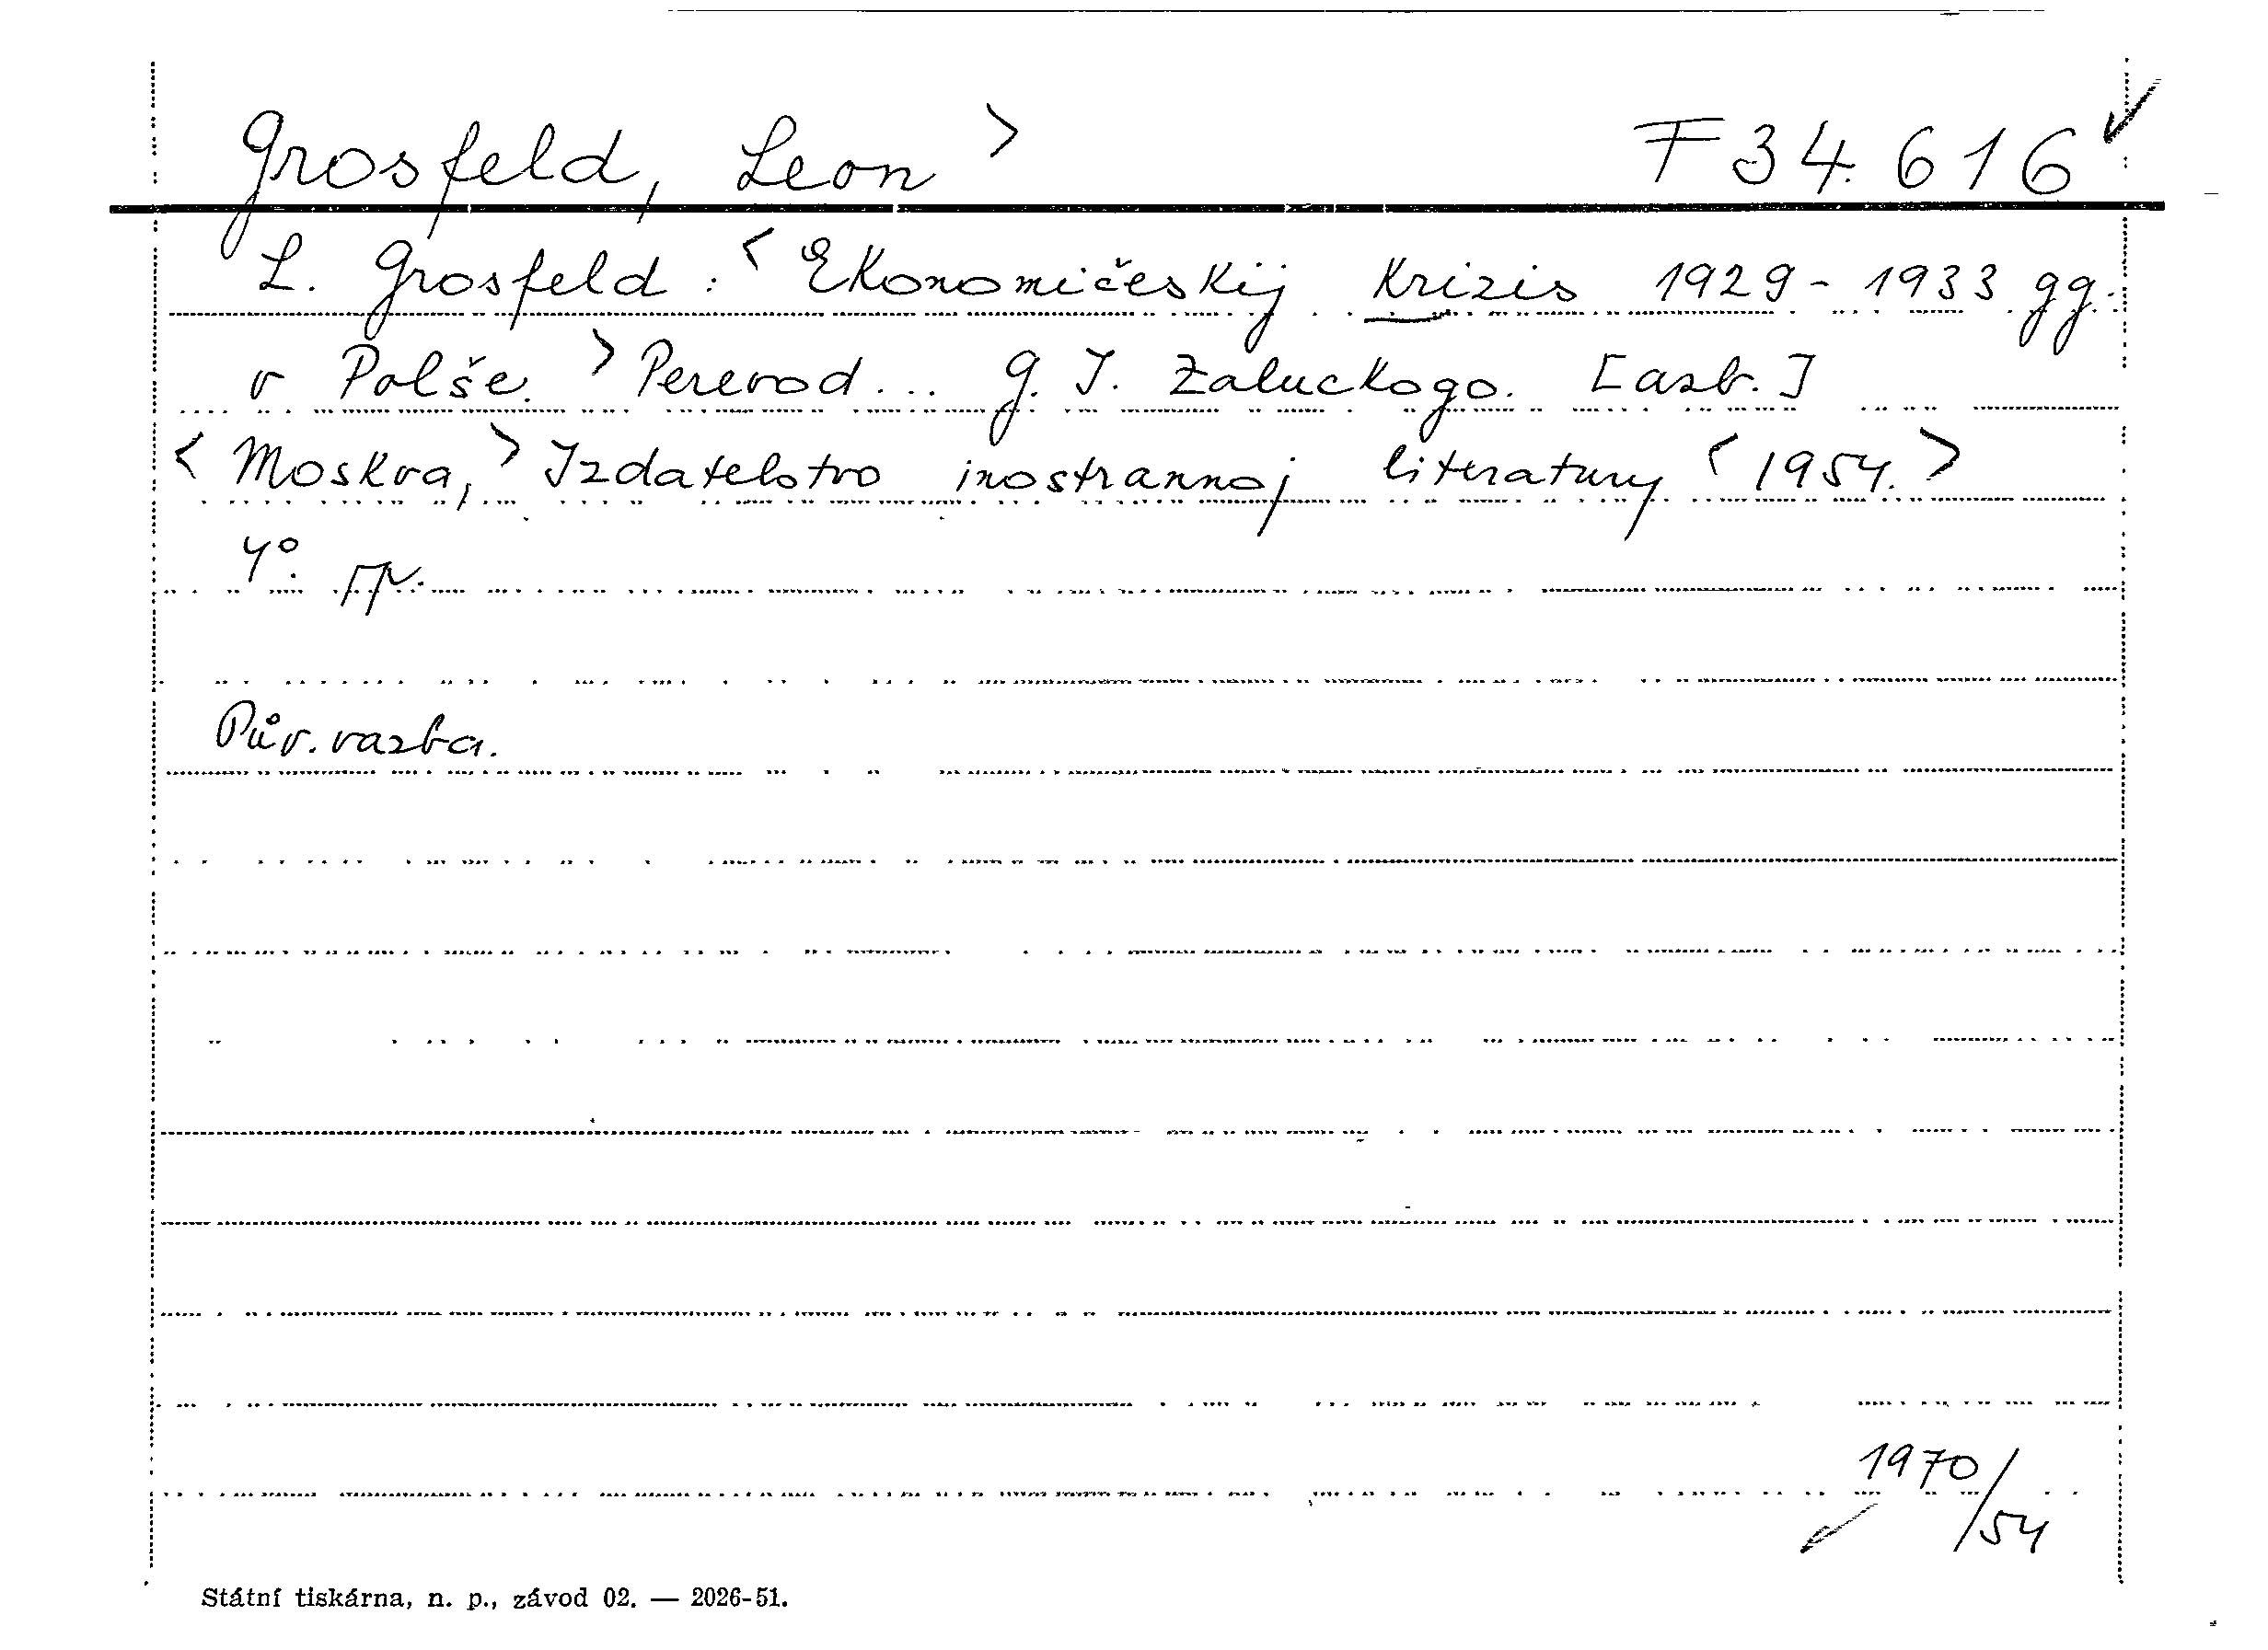 Grosfeld, Leon > F 34.616 ✓
L. Grosfeld: < Ekonomičeskij krizis 1929-1933 gg.
v Polše. > Perevod... G. I. Zaluckogo. [azb.]
< Moskva, > Izdatelstvo inostrannoj literatury < 1954. >
4°.
Pův. vazba.
1970/54
Státní tiskárna, n. p., závod 02. — 2026-51.